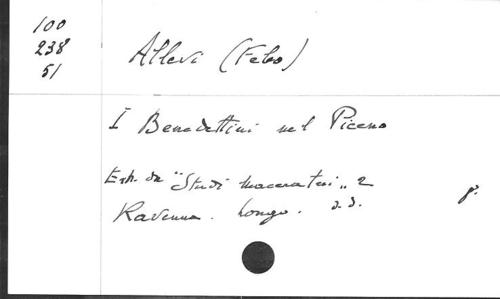 100
238
51
Allevi (Febo)
I Benedettini nel Piceno
Estr. da "Studi maceratesi" 2
Ravenna. Longo. s.d.
p.